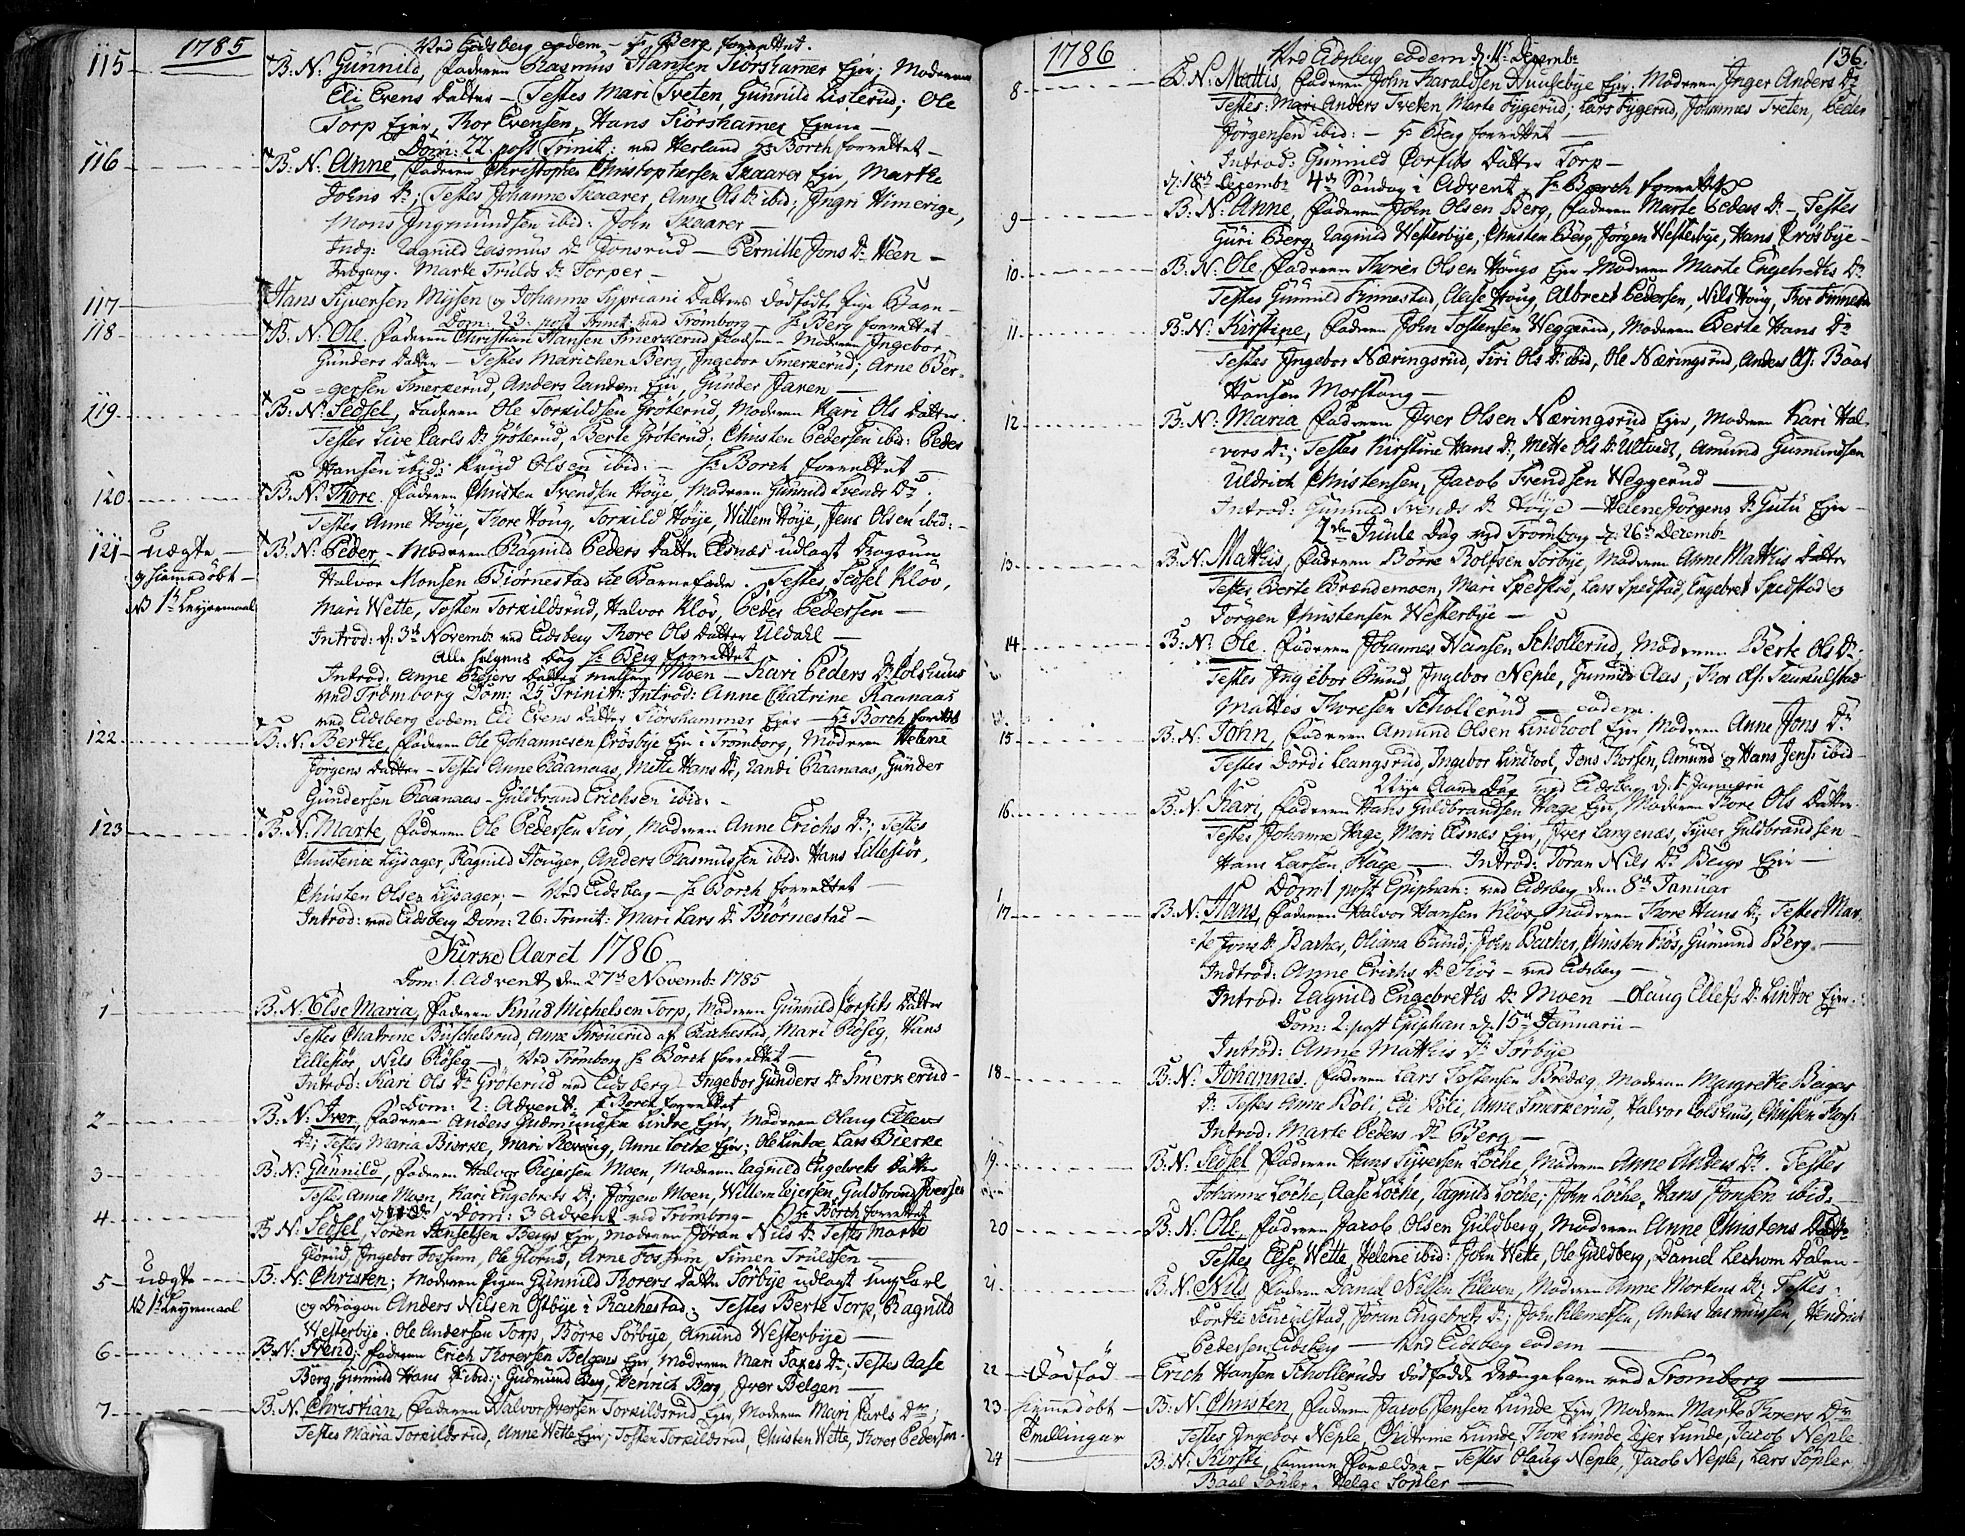 1785
Ved Eidsberg eodem – Hr Berg forrettet.
115 B: N: Gunnild, Faderen Rasmus Hansen Siørshammer Ejer; Moderen
Eli Evens Datter – Testes Mari Tveten, Gunnild Listerud; Ole
Torp Ejer, Thor Evensen, Hans Siørshammer Ejerne –
Dom: 22 post Trinit: ved Herland Hr Borch forrettet –
116 B: N: Anne, Faderen Christopher Christophersen Skaarer Ejer, Marthe
Johns Dr; Testes Johanne Skaarer, Anne Ols Dr ibid: Ingri Himerige,
Mons Ingmundsen ibid: John Skaarer –
Indg: Ragnild Rasmus Dr Tonsrud – Pernille Jons Dr Heen –
Indgang. Marte Truls Dr Torper –
117 Hans Syversen Mysen og Johanne Sypriani Datters dødfødte Pige Barn –
Dom: 23 post Trinit: ved Trömborg Hr Berg forrettet
118 B: N: Ole, Faderen Christian Hansen Smerkerud Pladsen – Moderen Ingebor
Gunders Datter – Testes Marichen Berg, Ingebor Smerkerud; Arne Ber-
gersen Smerkerud, Anders Randem Ejer, Gunder Jaren –
119 B: N: Sedsel, Faderen Ole Torkildsen Grøterud, Moderen Kari Ols Datter
Testes Live Carls Dr Grøterud, Berte Grøterud; Christen Pedersen ibid: Peder
Hansen ibid: Knud Olsen ibid: – Hr Borch forrettet –
120 B: N: Thore, Faderen Christen Svendsen Høye, Moderen Gunnild Svends Dr.
Testes Anne Høye, Thore Houg, Torkild Høye, Willem Høye, Jens Olsen ibid: –
121 uægte – B: N: Peder, – Moderen Ragnild Peders Datter Elsnæs udlagt Dragoun
og hiemedøbt – Halvor Monsen Biørnestad til Barnefader. Testes, Sedsel Kløv,
NB 1te Leyermaal Mari Wette, Tosten Torkildsrud, Halvor Kløv, Peder Pedersen –
Introd: d: 3de Novemb: ved Eidsberg Thore Ols Datter Uldahl –
Alle helgens Dag Hr Berg forrettet
Introd: Anne Rejers Datter Moen – Kari Peders Dr Kolshuus
ved Trömborg Dom: 25 Trinit: Introd: Anne Catrine Raanaas
ved Eidsberg eodem Eli Evens Datter Siørshammer Ejer – Hr Borch forrettet
122 B: N: Berthe, Faderen Ole Johannesen Crösbye Ejer i Trömborg, Moderen Helene
Jörgens Datter – Testes Anne Raanaas, Mette Hans Dr, Randi Raanaas, Gunder
Gundersen Raanaas – Guldbrand Erichsen ibid: –
123 B: N: Marte, Faderen Ole Pedersen Siör, Moderen Anne Erichs Dr; Testes
Christence Lysager, Ragnild Houger, Anders Rasmussen ibid: Hans Lillesiör,
Christen Olsen Lysager, – Ved Eidsberg – Hr Borch forrettet –
Introd: ved Eidsberg Dom: 26: Trinit: Mari Lars Dr Biørnestad –
Kirke Aaret 1786.
Dom: 1. Advent den 27de Novemb: 1785
1 B: N: Else Maria, Faderen Knud Michelsen Torp, Moderen Gunnild Corfits Datter
Testes Chatrine Buschelsrud, Anne Krouerud af Rachestad, Mari Röseg, Hans
Lillesiör, Nils Röseg –, Ved Trömborg Hr Borch forrettet –
Introd: Kari Ols Dr Grøterud ved Eidsberg – Ingebor Gunders Dr Smerkerud –
Dom: 2: Advent, Hr Borch forrettet
2 B: N: Iver, Faderen Anders Gudmundsen Lintoe Ejer, Moderen Olaug Ellevs
Dr; Testes Maria Bierke, Mari Revoug, Anne Loche Ejer; Ole Lintoe Lars Bierke
3 B: N: Gunnild, Faderen Halvor Rejersen Moen, Moderen Ragnild Engebrets Datter
Testes Anne Moen, Kari Engebrets Dr; Jörgen Moen, Willem Rejersen, Guldbrand Iversen
Dom: 3 Advent ved Trömborg – Hr Borch forrettet
4 B: N: Sedsel, Sören Hanselsen Bergs Ejer, Moderen Jöran Nils Dr Testes Marte
Glorud, Ingebor Fossum, Ole Glorud, Arne Fossum Simen Trulssen –
5 uægte – B: N: Christen; Moderen Pigen Gunnild Thorers Datter Sörbye udlagt Ungkarl
NB 1te Leyermaal og Dragon Anders Nilsen Ostbye i Rachestad; Testes Berte Torp, Ragnild
Westerbye, Ole Andersen Torp, Börre Sörbye, Amund Westerbye –
6 B: N: Svend; Faderen Erich Thorersen Belgens Ejer, Moderen Mari Saxes Dr; Testes Aase
Berg, Gunnild Hans Dr ibid: Gudmund Berg, Henrich Berg, Iver Belgen –
7 B: N: Christian, Faderen Halvor Iversen Torkildsrud Ejer Moderen Mari Carls Dr;
Testes Maria Torkildsrud, Anne Wette Ejer; Tosten Torkildsrud, Christen Wette, Thorer Pedersen.
1786 136.
Ved Eidsberg eodem d: 11te Decemb:
8 B: N: Mattis, Faderen John Haraldsen Huusebye Ejer; Moderen Inger Anders Dr
Testes: Mari Anders Tveten, Marte Rygerud; Lars Rygerud, Johannes Tveten, Peder
Jörgensen ibid: – Hr Berg forrettet –
Introd: Gunnild Corfits Datter Torp –
d: 18de Decemb: 4de Söndag i Advent, Hr Borch forrettet
9 B: N: Anne, Faderen John Olsen Berg, Faderen Marte Peders Dr –, Testes
Guri Berg, Ragnild Westerbye, Christen Berg, Jörgen Westerbye, Hans Crösbye –
10 B: N: Ole, Faderen Thorer Olsen Hougs Ejer – Moderen Marte Engebrets Dr
Testes Gunnild Finnestad, Aase Houg, Albrect Pedersen, Nils Houg, Thor Finnestad
11 B: N: Kirstine, Faderen John Tostensen Weggerud, Moderen Berte Hans Dr
Testes Ingebor Næringsrud, Siri Ols Dr ibid, Ole Næringsrud, Anders Ols: Baat
Hansen Morstong –
12 B: N: Maria Faderen Iver Olsen Næringsrud Ejer, Moderen Kari Hal-
vors Dr; Testes Kirstine Hans Dr, Mette Ols Dr Ultvedt, Amund Gumundsen
Uldrich Christensen, Jacob Svendsen Weggerud –
Introd: Gunnild Svends Dr Höije – Helene Jörgens Dr Gutu Ejer –
2den Juule Dag ved Trömborg d: 26de Decemb:
13 B: N: Mathis, Faderen Börre Rolfsen Sörbye, Moderen Anne Mathis Datter
Testes Berte Brændemoen, Mari Spedstad, Lars Spedstad, Engebret Spedstad og
Jörgen Christensen Westerbye –
14 B: N: Ole. Faderen Johannes Hansen Schollerud, Moderen Berte Ols Dr;
Testes Ingebor Rund, Ingebor Neple, Gunnild Aas; Thor Ols: Skuculstad
Mattes Thoresen Schollerud – eodem.
15 B: N: John, Faderen Amund Olsen Lindhool Ejer Moderen Anne Jons Dr
Testes Dordi Leangsrud, Ingebor Lindhool, Jens Thorsen, Amund og Hans Jens: ibid –
Nytt Aars Dag ved Eidsberg d: 1te Januarii
16 B: N: Kari, Faderen Hans Guldbrandsen Hage Ejer, Moderen Thore Ols Datter –
Testes Johanne Hage, Mari Elsnes Ejer, Iver Langenæs, Syver Guldbrandsen –
Hans Larsen Hage, – Introd: Jöran Nils Dr Bergs Ejer –
Dom 1 post Epiphan: ved Eidsberg den 8de Januar
17 B: N: Hans, Faderen Halvor Hansen Klöv, Moderen Thore Hans Dr; Testes Mar-
te Jons Dr Bacher, Oliana Rund; John Bacher, Christen Friös, Gumund Berg. –
Indtrod: Anne Erichs Dr Siör – ved Eidsberg –
Introd: Ragnild Engebrets Dr Moen – Olaug Ellefs Dr Lintoe Ejer.
Dom: 2: post Epiphan d: 15de Januarii –
Introd: Anne Mathis Dr Sörbye
18 B: N: Johannes, Faderen Lars Tostensen Bredeg, Moderen Margrethe Bergers
Dr: Testes Anne Böli, Eli Böli, Anne Smerkerud, Halvor Kolshuus, Christen Thors:
Introd: Marte Peders Dr Berg –
19 B: N: Sedsel Faderen Hans Syversen Loche, Moderen Anne Anders Dr. Testes
Johanne Loche, Aase Loche, Ragnild Loche; John Loche, Hans Jonsen ibid. –
20 B: N: Ole, Faderen Jacob Olsen Guldberg, Moderen Anne Christens Datr
Testes Else Wette, Helene ibid: John Wette, Ole Guldberg, Daniel Lexhom Dalen –
21 B: N: Nils Faderen Daniel Nilsen Kleven, Moderen Anne Mortens Dr; Testes:
Dorthe Skuculstad, Jöran Engebrets Dr; John Klemetsen, Anders Rasmussen, Hendrich
Pedersen Eidsberg – Ved Eidsberg eodem –
22 Dödfød – Erich Hansen Scholleruds dödfödde Drengebarn ved Trömborg –
23 hiemmedøbt – B: N: Christen, Faderen Jacob Jensen Lunde Ejer, Moderen Marte Thorers Dr
Tvillinger Testes Ingebor Neple, Chatrine Lunde, Thore Lunde Rejer Lunde, Jacob Neple
24 B: N: Kirsti, samme Forældre – Testes Olaug Neple, Jacob Neple, Lars Sopler
Baal Sopler, Helge Sopler –